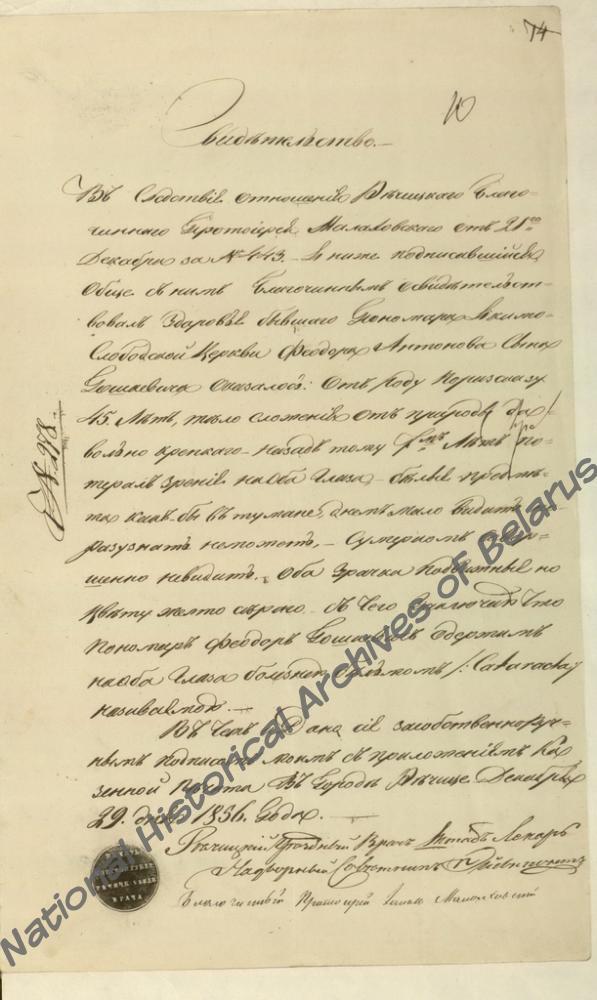 74
10
Свидѣтельство.
Въ Следствіе отношенія Рѣчицкаго Благо-
чиннаго Протоіерея Малаховскаго отъ 21го
Декабря за № 443. Я ниже подписавшійся
Обще съ нимъ Благочиннымъ освидѣтельст-
вовалъ Здоровье бывшаго Пономаря Якимо
Слободской Церкви Феодора Антонова Сына
Гошкевича оказалось: Отъ роду
45. Лѣтъ, тѣло сложенія отъ природы до-
вольно крепкаго назадъ тому Лѣтъ по-
терялъ зреніе на оба глаза, белые предмѣ-
та какъ бы въ тумане, днемъ мало видитъ
разузнать неможетъ, Сумеркомъ совер-
шенно невидитъ. Оба Зрачка подвижные но
Цвѣту желто сѣраго съ чего Заключаю что
пономарь Феодоръ Гошкевичъ одержимъ
на оба глаза болезнею бѣльмомъ /: Cataracta
называемою.
Въ чемъ Дана сіе засобственноруч-
нымъ подписомъ моимъ съ приложеніемъ Ка-
зенной печати Въ Городѣ Рѣчице Декабря
29. дня 1836. Года.
Рѣчицкій Уѣздный Врачъ Штабъ Лекарь
Надворный Совѣтникъ
Благочинный Протоіерей Малаховскій
№ 278.
ВРАЧА
National Historical Archives of Belarus